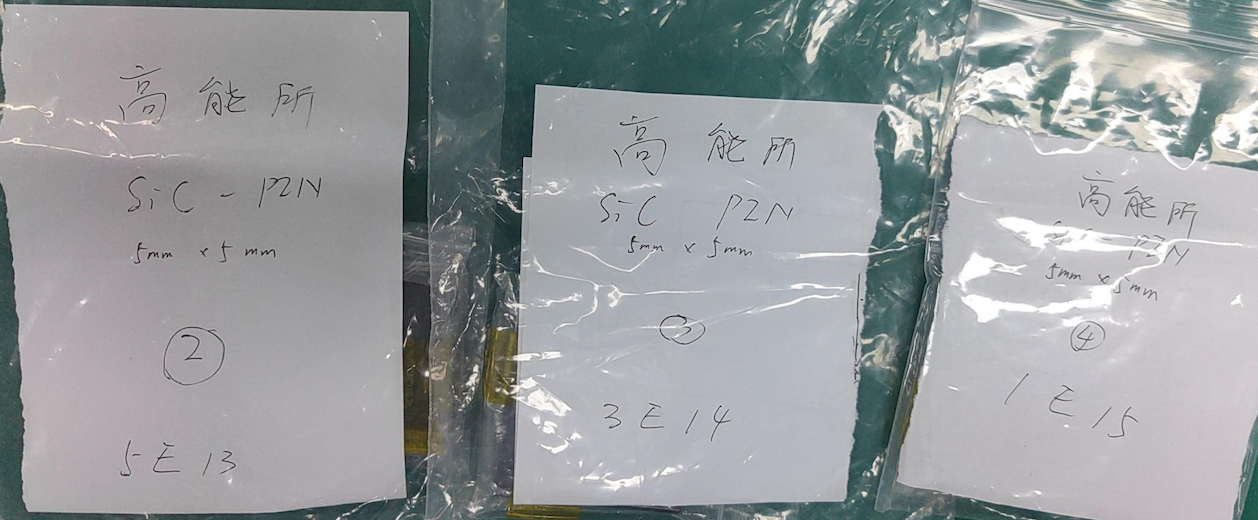 高能所
SiC - PIN
5mm x 5mm
②
5E13
高能所
SiC PIN
5mm x 5mm
③
3E14
高能所
SiC - PIN
5mm x 5mm
④
1E15